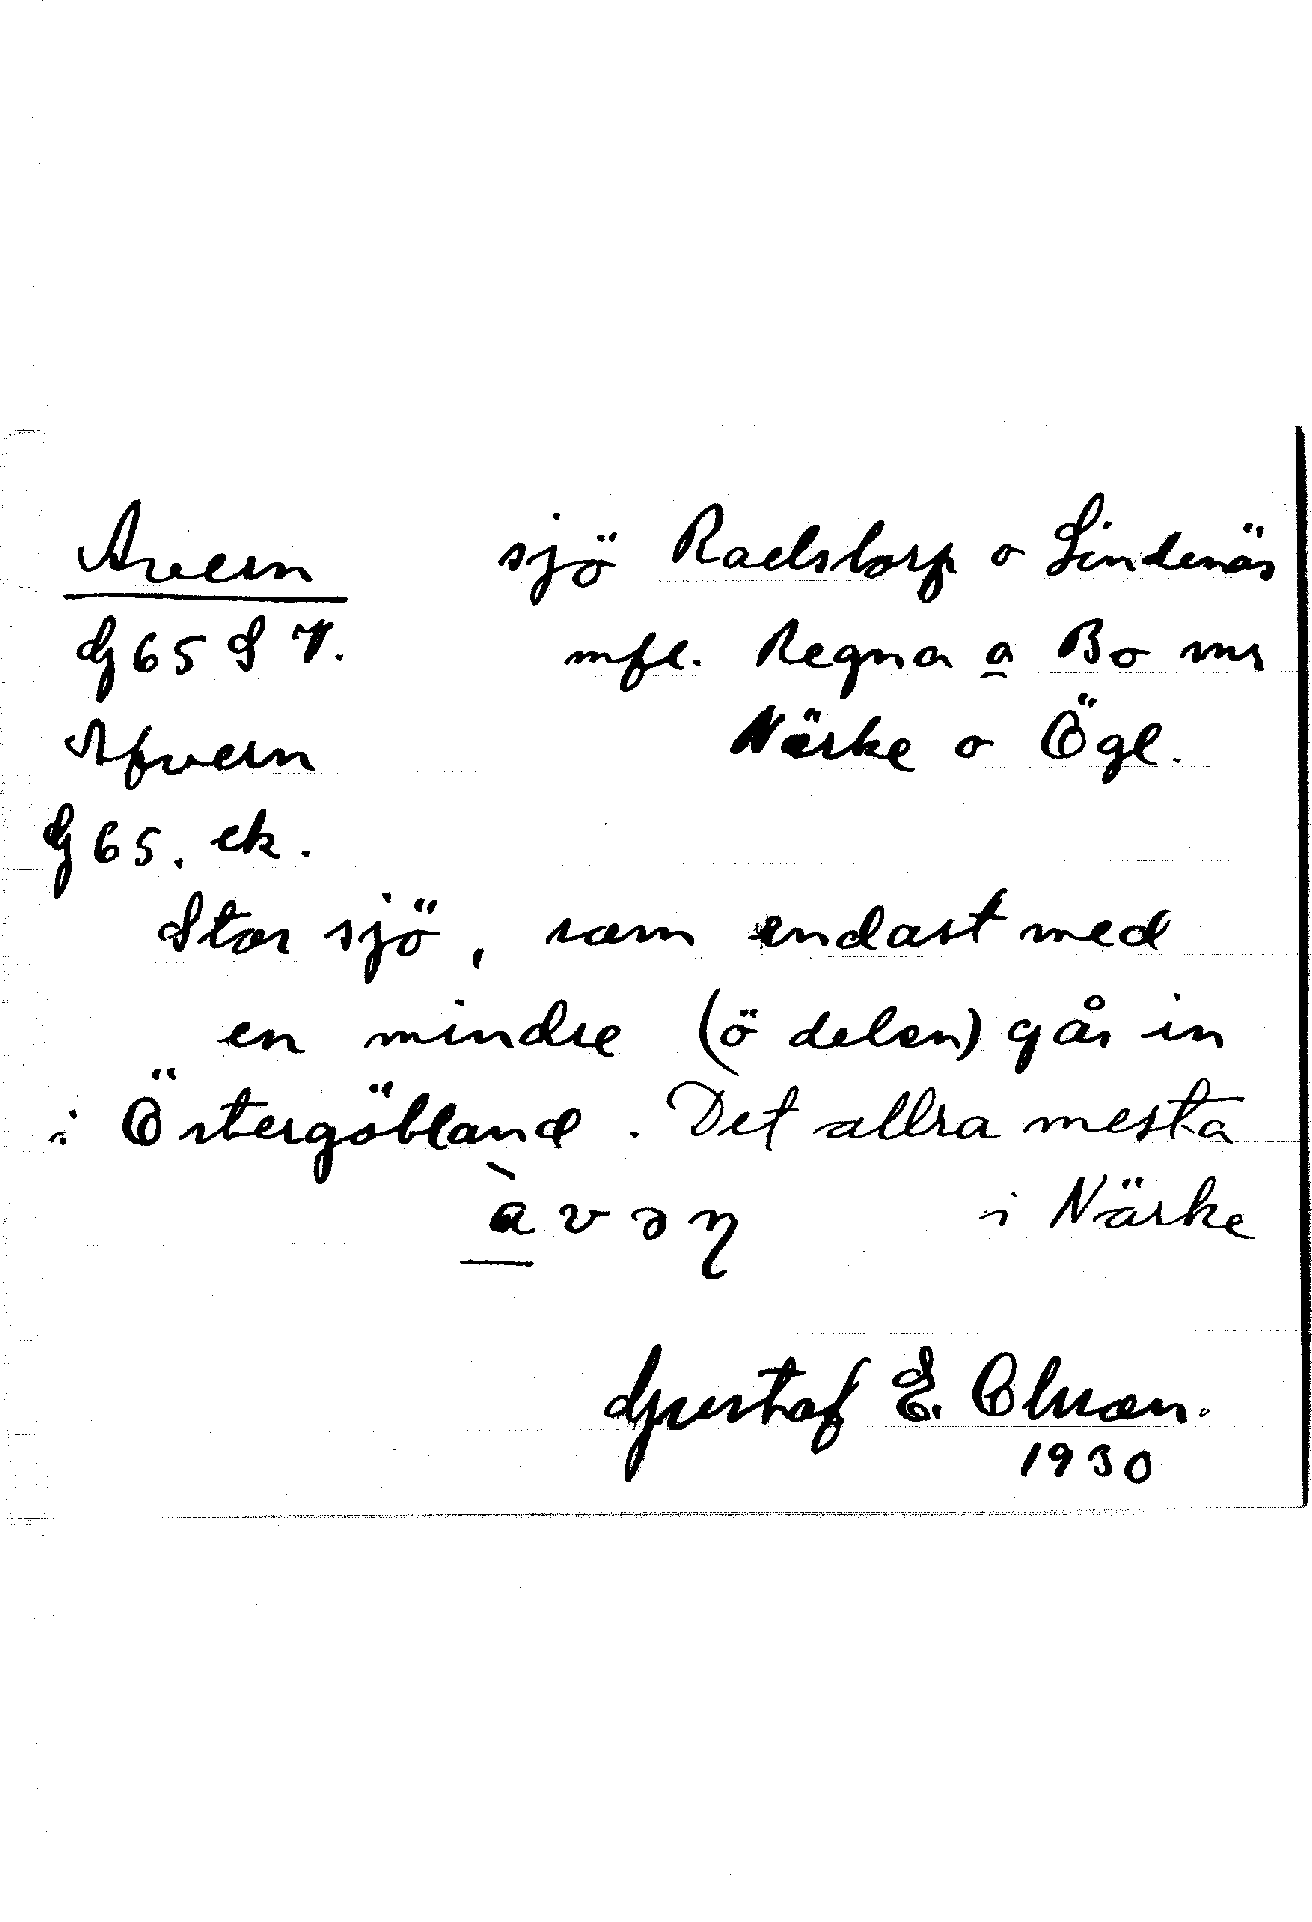 Avern sjö Radstorp o Lindenäs
G 65 S V. mfl. Regna o Bo snr
Afvern Närke o Ögl.
G 65. ek.
Stor sjö, som endast med
en mindre (ö delen) går in
i Östergötland. Det allra mesta
àvəŋ i Närke
Gustaf E. Olsson.
1930